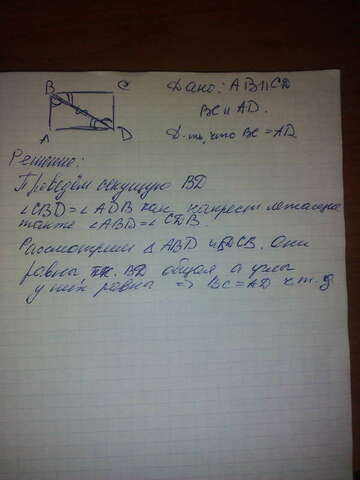 B C
A D
Дано: AB || CD
BC || AD.
Д-ть, что BC = AD.
Решение:
Проведём секущую BD
∠CBD = ∠ADB как накрест лежащие
также ∠ABD = ∠CDB.
Рассмотрим Δ ABD и BDCB. Они
равны т.к. BD общая а углы
у них равны ⇒ BC = AD ч.т.д